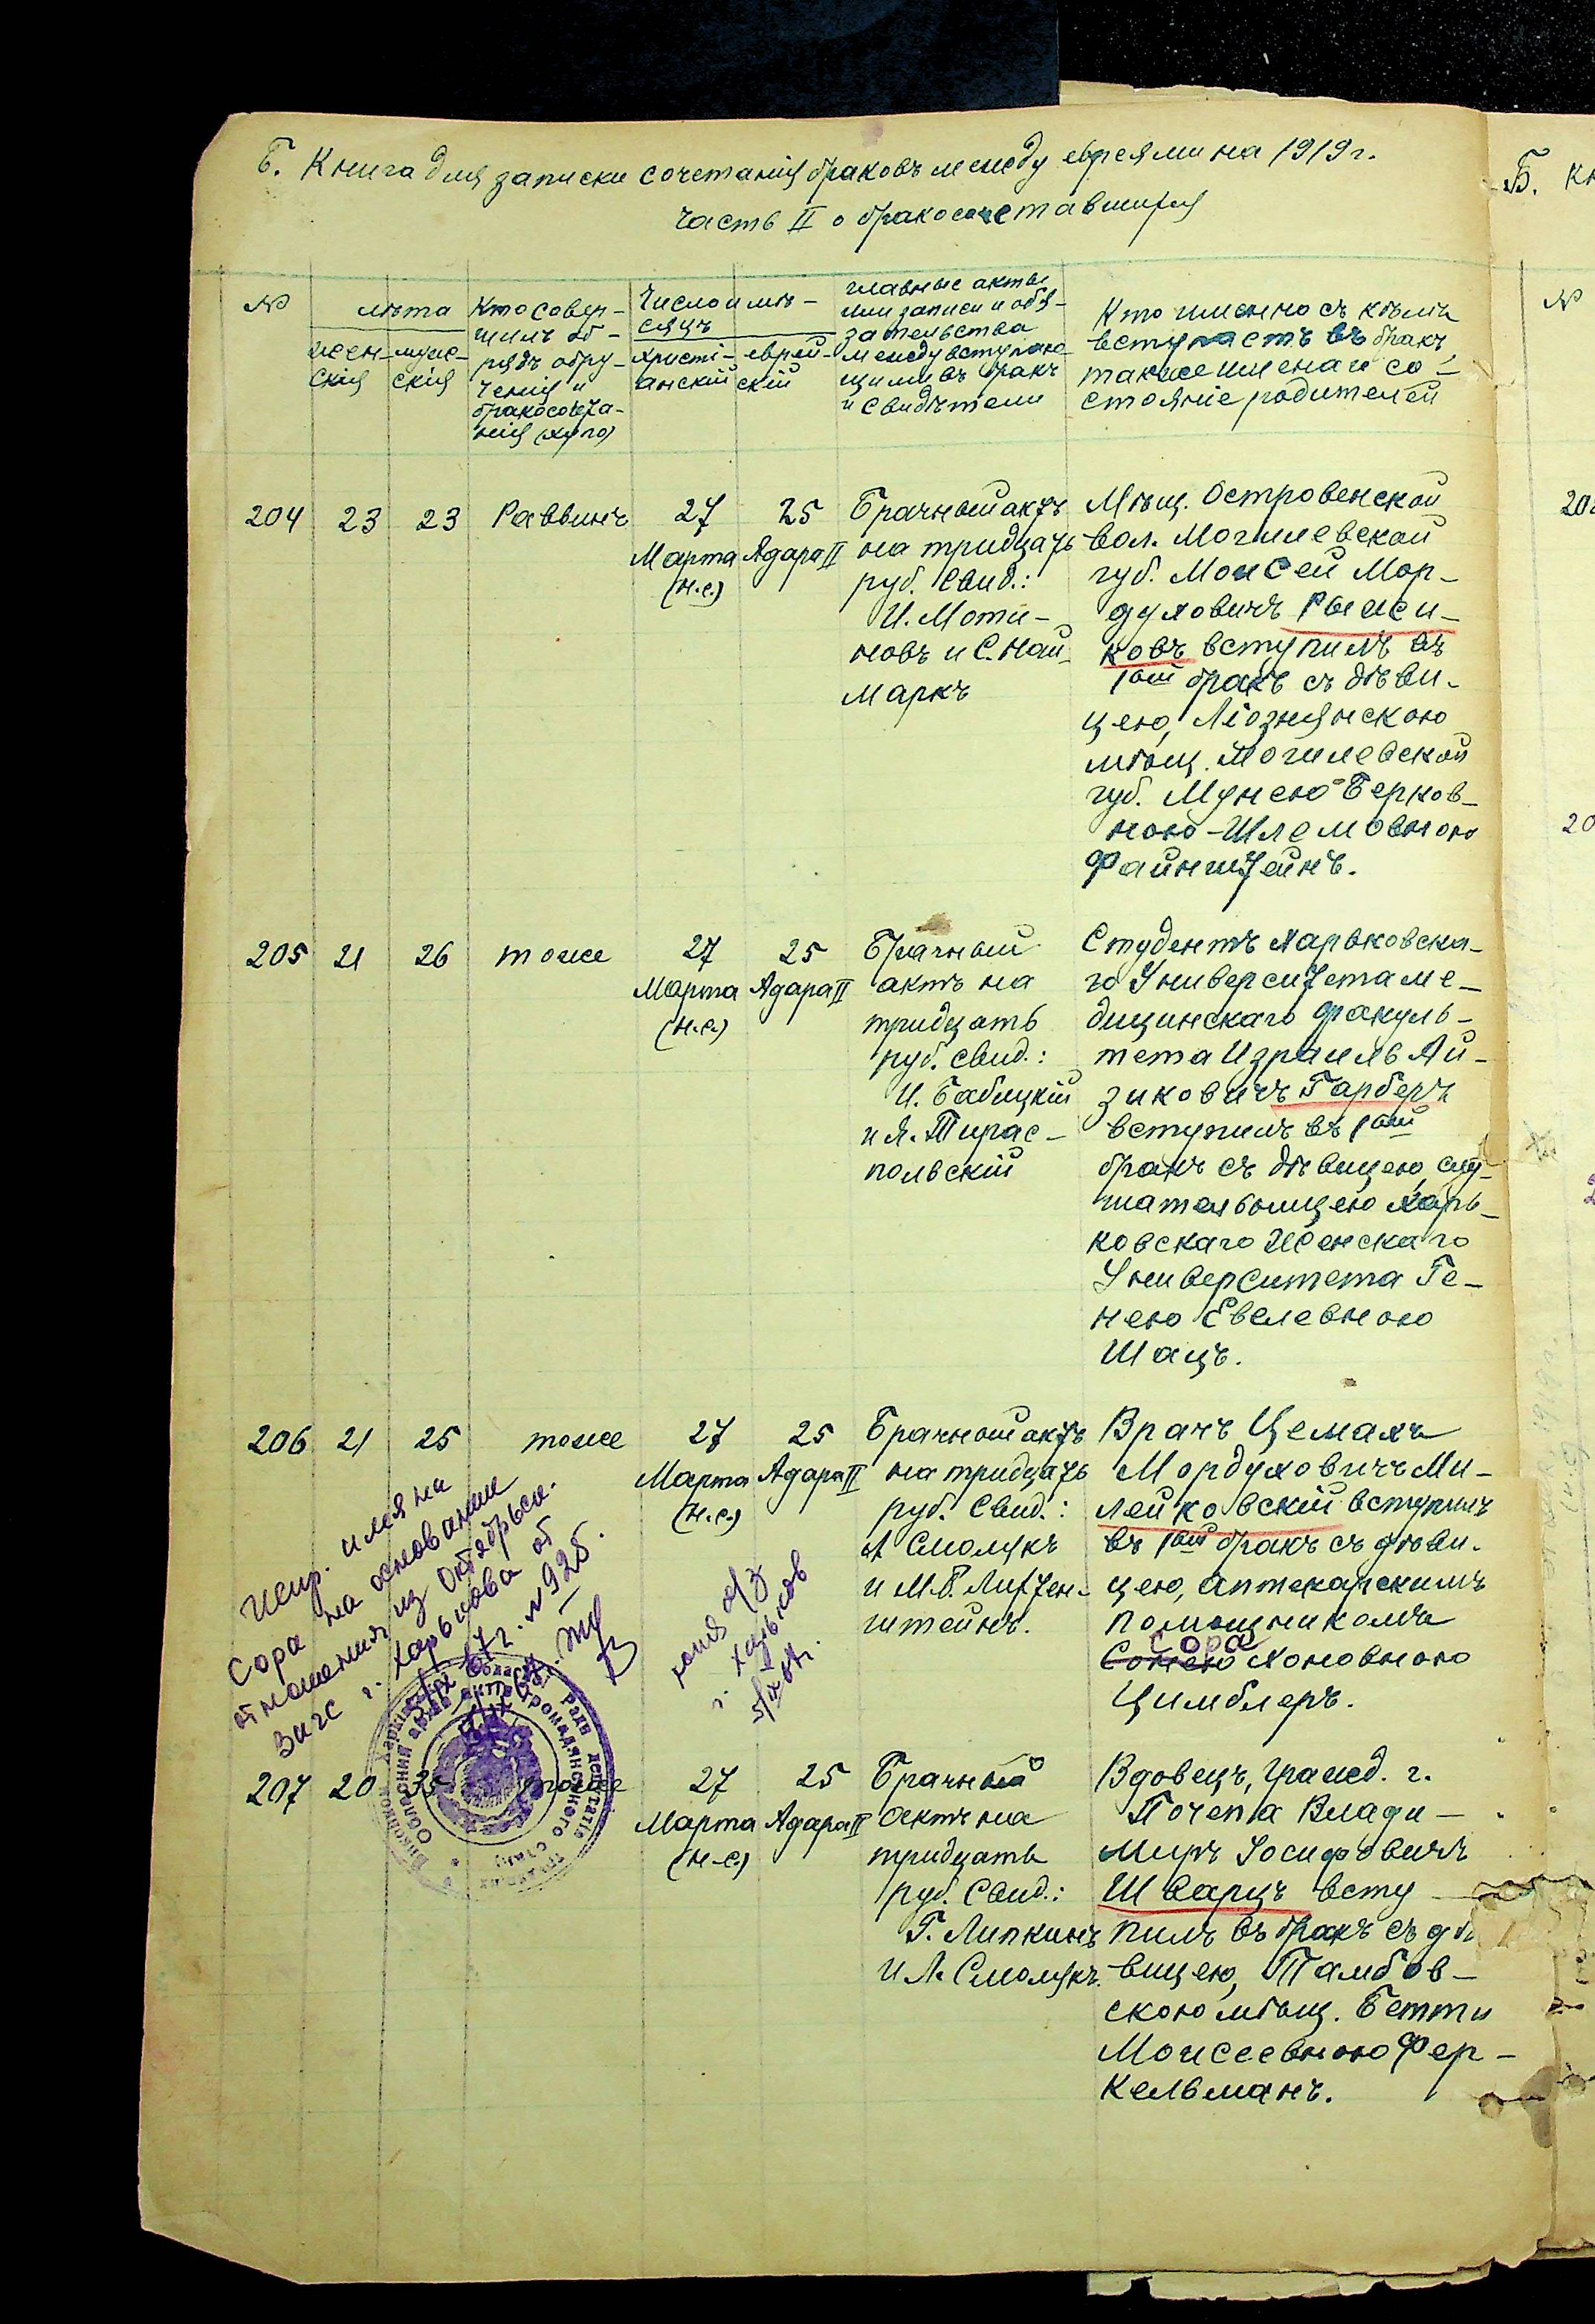 Б. Книга для записки сочетанія браковъ между евреями на 1919 г.
Часть II о бракосочетавшихся
№
лѣта
жен-
скія
муже-
скія
Кто совер-
шилъ об-
рядъ обру-
ченія и
бракосочета-
нія (хупо)
Число и мѣ-
сяцъ
христі-
анскій
еврей-
скій
Главные акты
или записи и обя-
зательства
между вступаю-
щими въ бракъ
и свидѣтели
Кто именно съ кѣмъ
вступаетъ въ бракъ,
также имена и со-
стояніе родителей
204 23 23 Раввинъ
27
Марта
(н.с.)
25
Адара II
Брачный актъ
на тридцать
руб. Свид.:
И. Моти-
новъ и С. Най-
маркъ
Мѣщ. Островенской
вол. Могилевской
губ. Моисей Мор-
духовичъ Рыжи-
ковъ вступилъ въ
1ый бракъ съ дѣви-
цею, Ліознянскою
мѣщ. Могилевской
губ. Мунею Берков-
ною-Шлемовною
Файнштейнъ.
205 21 26 тоже
27
Марта
(н.с.)
25
Адара II
Брачный
актъ на
тридцать
руб. Свид.:
И. Бабицкій
и Я. Тирас-
польскій
Студентъ Харьковска-
го Университета ме-
дицинскаго факуль-
тета Израиль Ай-
зиковичъ Гарберъ
вступилъ въ 1ый
бракъ съ дѣвицею, слу-
шательницею Харь-
ковскаго Женскаго
Университета Ге-
нею Евелевною
Шацъ.
206 21 25 тоже
27
Марта
(н.с.)
25
Адара II
Брачный актъ
на тридцать
руб. Свид.:
Л Смолукъ
и М.Б. Лихтен-
штейнъ.
Врачъ Цемахъ
Мордуховичъ Ми-
лейковскій вступилъ
въ 1ый бракъ съ дѣви-
цею, аптекарскимъ
помощникомъ
Сора
Сонею Хоновною
Цимблеръ.
Испр. имя на
Сора на основании
отношения из Октябрьск.
Загс г. Харькова от
67 г. № 925.
г. Харьков
207 20 35 тоже
27
Марта
(н.с.)
25
Адара II
Брачный
актъ на
тридцать
руб. Свид.:
Г. Липкинъ
и Л. Смолукъ.
Вдовецъ, гражд. г.
Почепа Влади-
миръ Іосифовичъ
Шварцъ всту
пилъ въ бракъ съ дѣ
вицею, Тамбов-
скою мѣщ. Бетти
Моисеевною Фер-
кельманъ.
Б. Кн
№
20
20